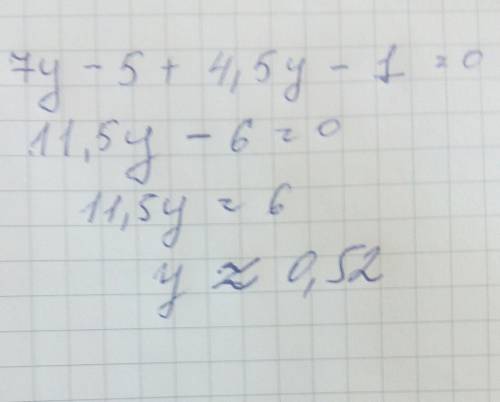 7y - 5 + 4,5y - 1 = 0
11,5y - 6 = 0
11,5y = 6
y ≈ 0,52